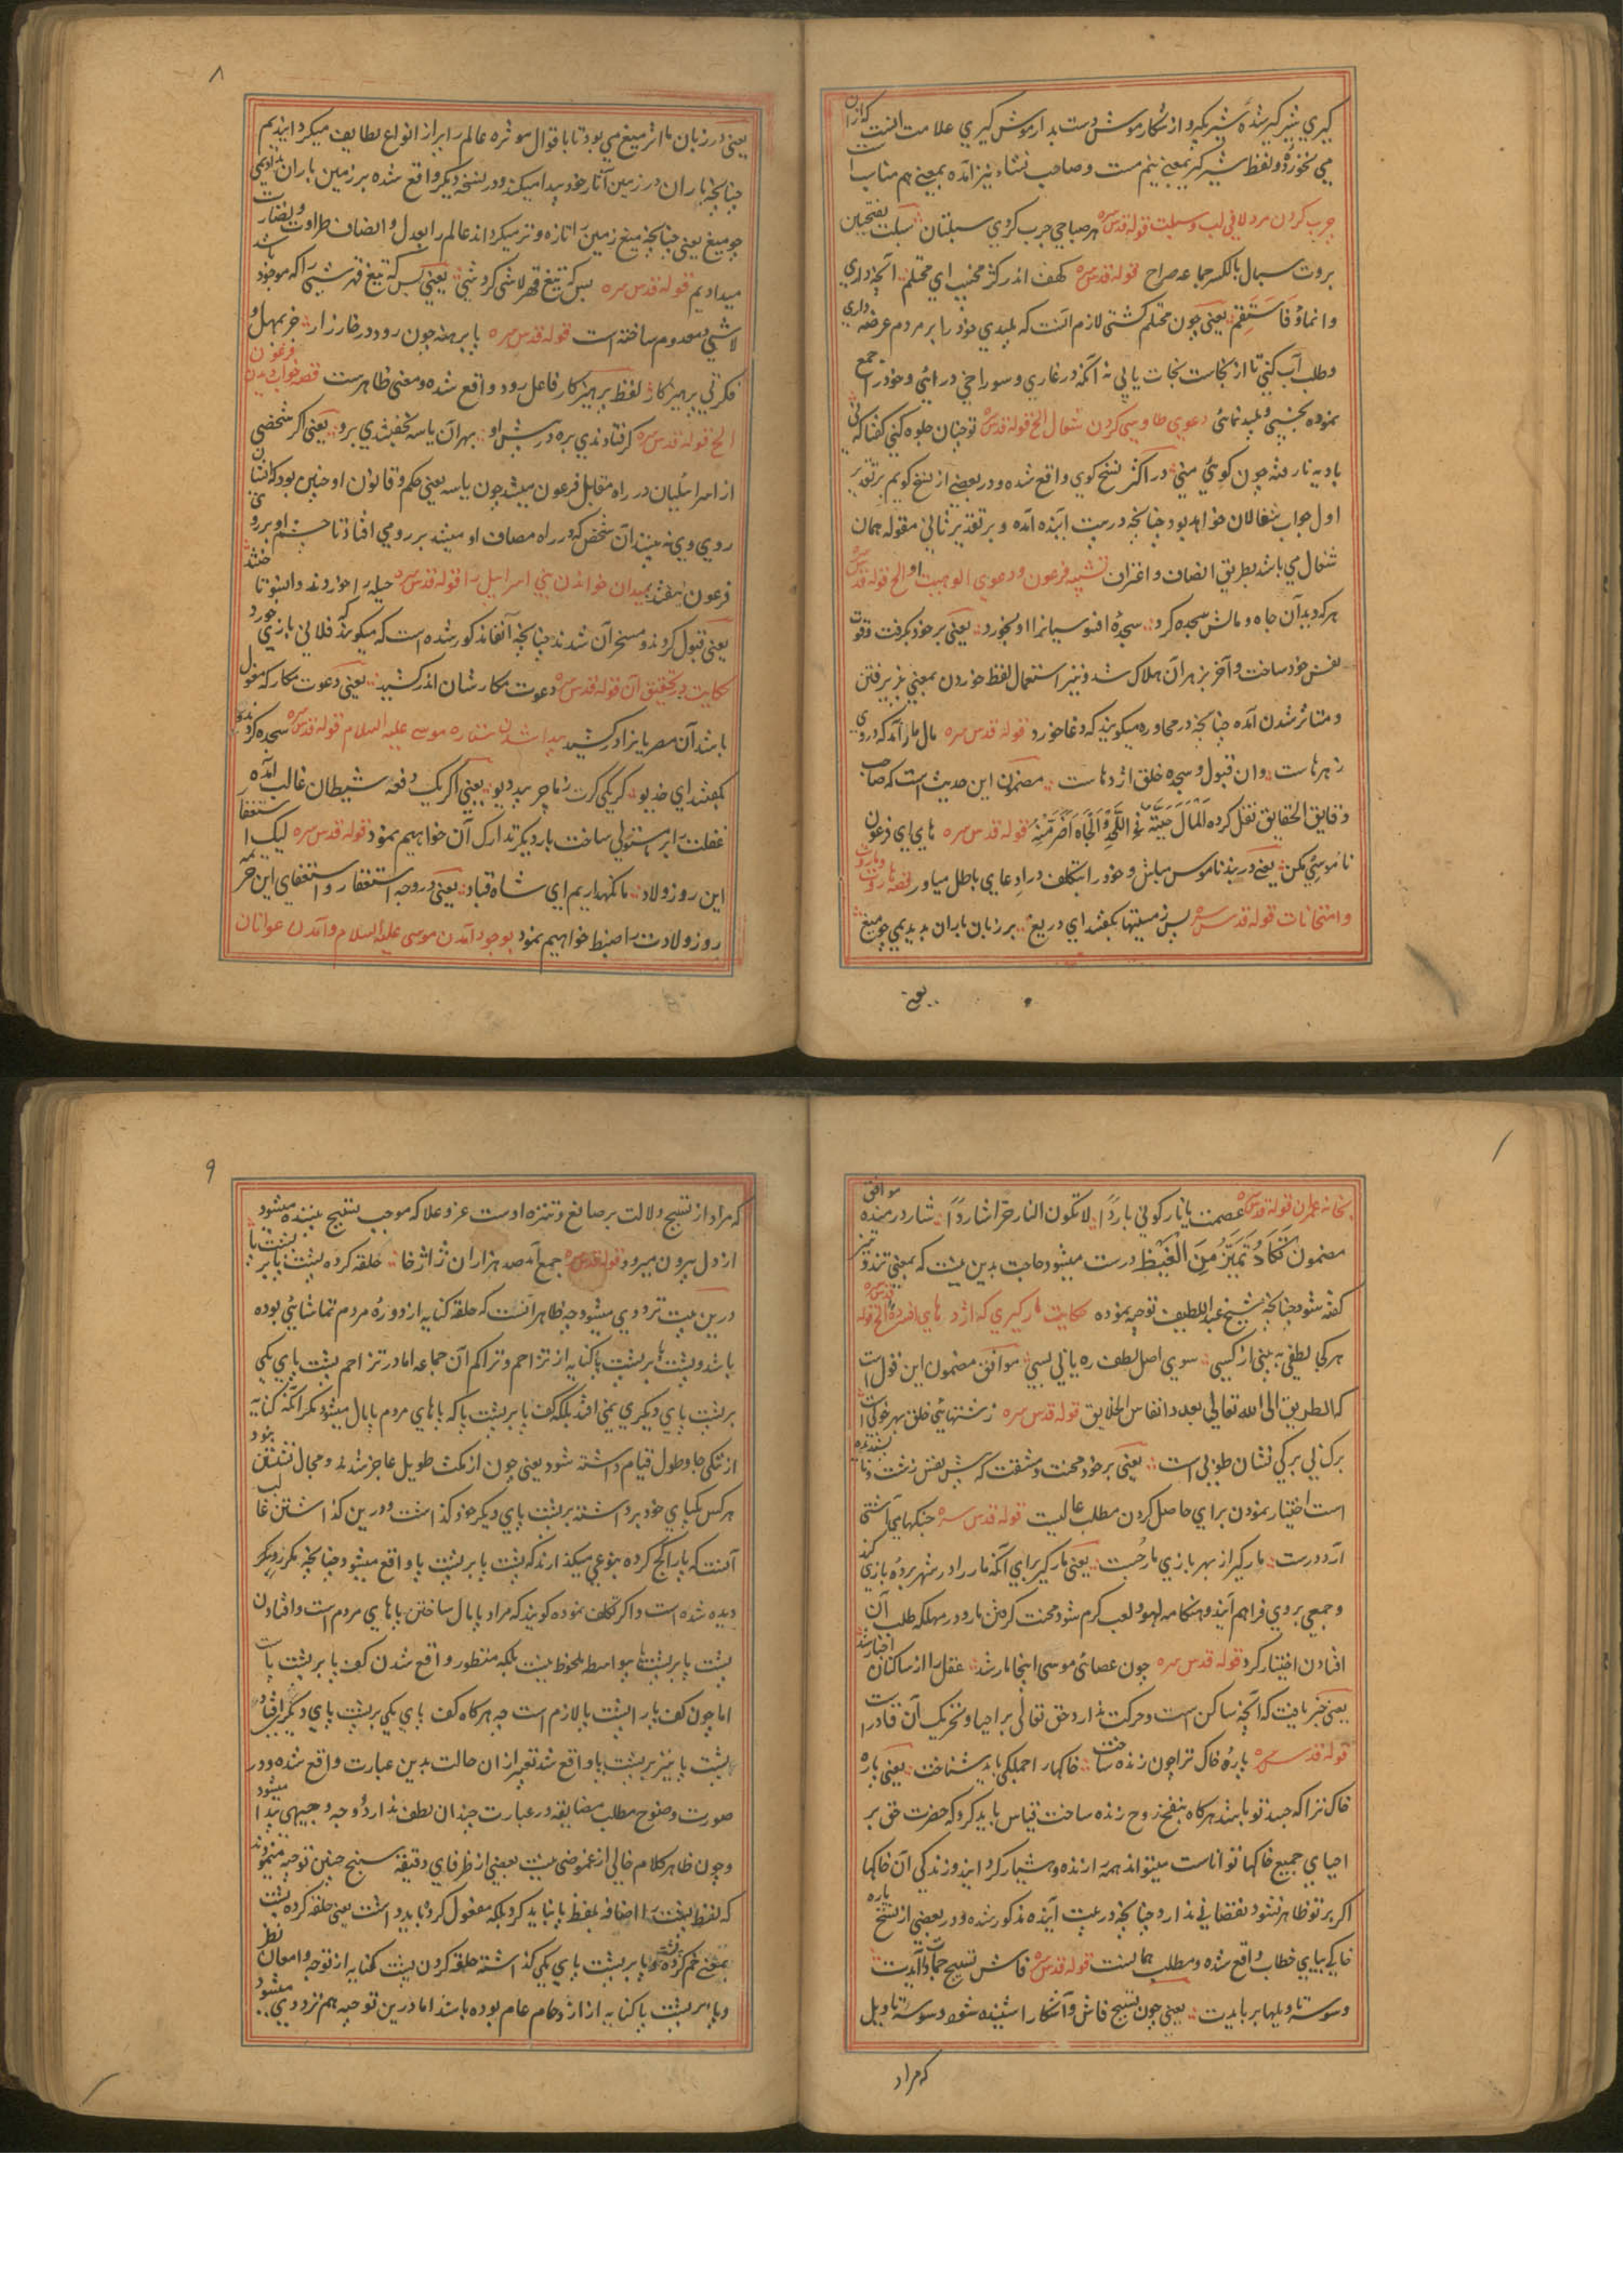 كيري شير كير شده شير بكير و از شكار موش دست بدار موش كيري علامت آنست كه از آن
مي نخورده و لفظ شير كير بمعني نيم مست و صاحب نشاء نيز آمده بمعني هم مناسب است
چرب كردن مرد لافي لب و سبلت قوله قدس سره هر صباحي چرب كردي سبلتان سبلت بفتحتين
بروت سبال بالكسر جماعه صراح قوله قدس سره كهف اندر كژ مخسپ اي محتلم آنچه داري
وانما و فاستقم يعني چون محتلم كشتي لازم آنست كه پليدي خود را بر مردم عرضه داري
و طلب آب كني تا از نجاست نجات يابي نه آنكه در غاري و سوراخي در آئي و خود را جمع
نموده بخسپي و پليد نمائي دعوي طاوسي كردن شغال الخ قوله قدس سره تو چنان جلوه كني كفتا كه ني
باديه نارفته چون كوئي منيٰ در اكثر نسخ كوي واقع شده و در بعضي از نسخ كويم بر تقدير
اول جواب شغالان خواهد بود چنانچه در بيت آينده آمده و بر تقدير ثاني مقوله همان
شغال مي باشد بطريق انصاف و اعتراف تشبيه فرعون و دعوي الوهيت او الخ قوله قدس سره
هر كه ديد آن جاه و مالش سجده كرد سجدهٔ افسوسيانرا او بخورد يعني بر خود بكرفت و قوت
نفس خود ساخت و آخر بزهر آن هلاك شد و نيز استعمال لفظ خوردن بمعني پذيرفتن
و متاثر شدن آمده چنانچه در محاوره ميكويند كه دغا خورد قوله قدس سره مال مار آمد كه در وي
زهرهاست وان قبول و سجده خلق اژدهاست مضمون اين حديث است كه صاحب
دقايق الحقايق نقل كرده المال حية و الجاه اضر منه قوله قدس سره هاي اي فرعون
ناموسي مكن يعني در بند ناموس مباش و خود را بتكلف در ادعايي باطل مياور قصه هاروت و ماروت
و امتحانات قوله قدس سره پس ز مستيها بكفتند اي دريغ بر زمان باران بديديمي چو ميغ
يعني
۸
يعني در زبان ما اثر ميغ مي بود تا باقوال موثره عالم را بر از انواع لطايف ميكردانيديم
چنانچه باران در زمين آثار خود پيدا ميكند و در نسخه ديكر واقع شده بر زمين باران بداديمي
چو ميغ يعني چنانچه ميغ زمين را تازه و تر ميكرداند عالم را بعدل و انصاف طراوت و نضارت
ميداديم قوله قدس سره پس كه تيغ قهر لاشي كرد شي يعني پس كه تيغ قهر شئ را كه موجود باشد
لاشي و معدوم ساخته است قوله قدس سره پا برهنه چون رود در خارزار جز بمهل و
فكرتي پرهيزكار لفظ پرهيزكار فاعل رود واقع شده و معني ظاهرست قصه خواب ديدن فرعون
الخ قوله قدس سره كر فتادندي بره در پيش او بهر آن ياسه بخفتندي برو يعني اكر شخصي
از اسرائيليان در راه مقابل فرعون ميشد چون ياسه يعني حكم و قانون او چنين بود كه ايشان
روي وي نه بينند آن شخص كه در راه مصاف او ميشد بر رومي افتاد تا چشم او بر روي
فرعون نيفتد بميدان خواندن بني اسرائيل را قوله قدس سره حيله را خوردند و آنسو تاختند
يعني قبول كردند و مسخر آن شدند چنانچه آنفا مذكور شده است كه ميكويند كه فلاني بازي خورد
حكايت در تحقيق آن قوله قدس سره دعوت مكارشان اندر كشيد يعني دعوت مكار كه مغول
باشد آن مصريانرا در كشيد پيدا شدن ستاره موسي عليه السلام قوله قدس سره سجده كردند و
بكفتند اي خديو كر يكي كرت ز ما چربيد ديو يعني اكر يك دفعه شيطان غالب آمده
غفلت را بر ما مستولي ساخت بار ديكر تدارك آن خواهيم نمود قوله قدس سره ليك استغفار
اين روز ولاد ما نكهداريم اي شاه قباد يعني در وجه استغفار و استعفاي اين جرم
روز ولادت را ضبط خواهيم نمود بوجود آمدن موسي عليه السلام و آمدن عوانان
بخانه عمران قوله قدس سره عصمت يا نار كوني باردا لا تكون النار حرا شاردا شارد رمنده موافق
مضمون تكاد تميز من الغيظ درست ميشود حاجت بدين نيست كه بمعني تند و تيز
كفته شود چنانچه شيخ عبد اللطيف توجيه نموده حكايت ماركيري كه اژدهاي افسرده الخ قوله قدس سره
هر كجا لطفي به بيني از كسي سوي اصل لطف ره يابي بسي موافق مضمون اين قول است
كه الطريق الي الله تعالي بعدد انفاس الخلايق قوله قدس سره زشتهائي خلق بهر خوبي است
برك بي بركي نشان طوبي است يعني بر خود محنت و مشقت كه پيش نفس زشت و ناپسنديده
است اختيار نمودن براي حاصل كردن مطلب عاليست قوله قدس سره جنكهاي آشتي
آرد درست ماركير از بهر بازي مار جست يعني ماركير براي آنكه مار را در شهر برده بازي كند
و جمعي بر وي فراهم آيند و هنكامه لهو و لعب كرم شود محنت كرفتن مار و در مهلكه طلب آن
افتادن اختيار كرد قوله قدس سره چون عصائي موسي اينجا مار شد عقل را از ساكنان اخبار شد
يعني خبر يافت كه آنچه ساكن است و حركت ندارد حق تعالي بر احيا و تحريك آن قادر است
قوله قدس سره پارهٔ خاك ترا چون زنده ساخت خاكها را جملكي بايد شناخت يعني پاره
خاك ترا كه جسد تو باشد هركاه بنفخ روح زنده ساخت قياس بايد كرد كه حضرت حق بر
احياي جميع خاكها تواناست ميتواند همه را زنده و هشيار كرداند و زندكي آن خاكها
اكر بر تو ظاهر نشود نقصاني ندارد چنانچه در بيت آينده مذكور شده و در بعضي از نسخ پاره
خاكي بياي خطاب واقع شده و مطلب همانست قوله قدس سره فاش تسبيح جمادات آيدت
وسوسه تاويلها بربايدت يعني چون تسبيح فاش و آشكارا شنيده شود وسوسه تاويل
كه مراد
۹
كه مراد از تسبيح دلالت بر صانع و تنزه اوست عز و علا كه موجب تسبيح بيننده ميشود
از دل بيرون ميرود قوله قدس سره جمع آمد صد هزاران ژاژخا حلقه كرده پشت پا بر پشت پا
درين بيت ترددي ميشود چه ظاهر آنست كه حلقه كنايه از دورهٔ مردم تماشائي بوده
باشد و پشت پا بر پشت پا كنايه از تزاحم و تراكم آن جماعه اما در تزاحم پشت پاي يكي
بر پشت پاي ديكري نمي افتد بلكه كف پا بر پشت پا كه پاهاي مردم پايمال ميشود مكر آنكه كنايه
از تنكي جا و طول قيام داشته شود يعني چون از مكث طويل عاجز شدند و مجال نشستن نبود
هركس يكپاي خود برداشته بر پشت پاي ديكر خود كذاشت و درين كذاشتن غالب
آنست كه پا را كج كرده بنوعي ميكذارند كه پشت پا بر پشت پا واقع ميشود چنانچه مكرر و مكرر
ديده شده است و اكر تكلف نموده كويند كه مراد پايمال ساختن پاهاي مردم است و افتادن
پشت پا بر پشتها بواسطه ملحوظ نيست بلكه منظور واقع شدن كف پا بر پشت پا است
اما چون كف پا را پشت پا لازم است چه هركاه كف پاي يكي بر پشت پاي ديكر افتاد
پشت پا نيز بر پشت پا واقع شد تعبير از ان حالت بدين عبارت واقع شده و در
صورت وضوح مطلب مضايقه در عبارت چندان لطف ندارد و وجه وجيهي پيدا ميشود
و چون ظاهر كلام خالي از غموضي نيست بعضي از ظرفاي دقيقه سنج چنين توجيه مينمودند
كه لفظ پشت را اضافه بلفظ پا نبايد كرد بلكه مفعول كرده بايد داشت يعني حلقه كرده پشت
بمعني خم كرده و پا بر پشت پاي يكي كذاشته حلقه كردن پشت كنايه از توجه و امعان نظر
و پا بر پشت پا كنايه از ازدحام عام بوده باشد اما درين توجيه هم ترددي ميشود